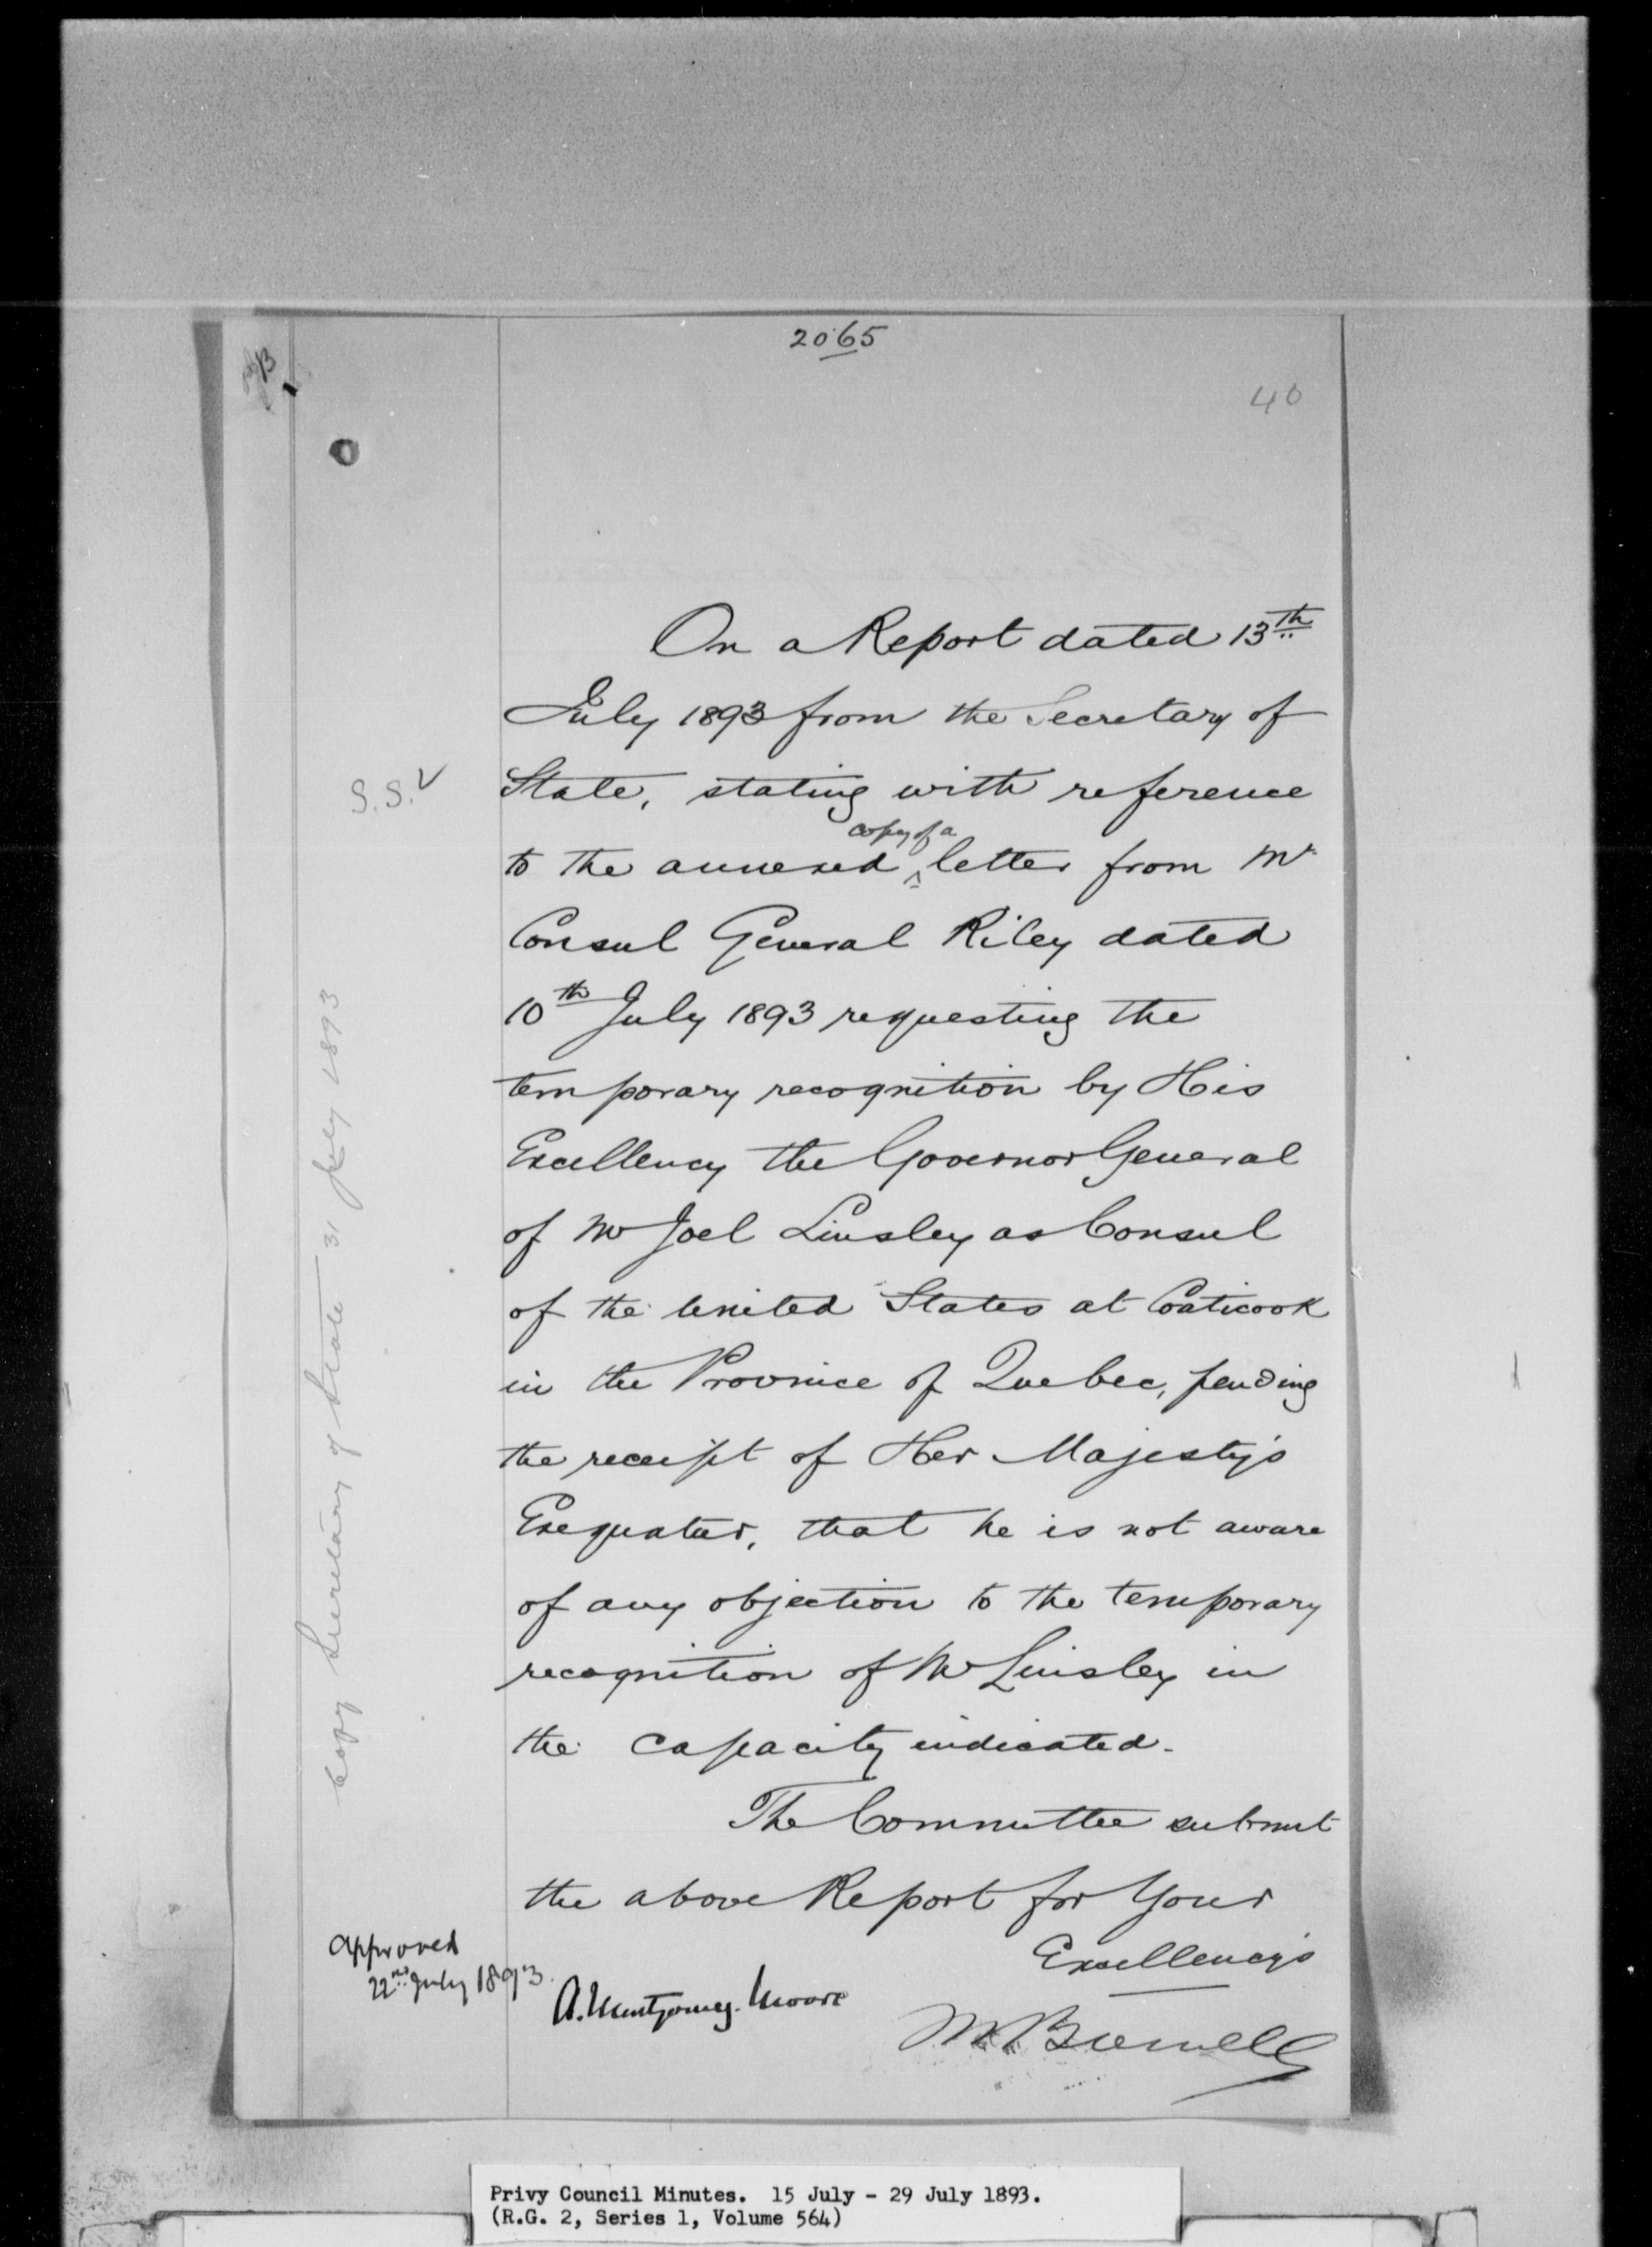 2065
40
On a Report dated 13th
July 1893 from the Secretary of
S.S.
State, stating with reference
copy of a
to the annexed ^ letter from Mr
Consul General Riley dated
10th July 1893 requesting the
temporary recognition by His
Excellency the Governor General
of Mr Joel Linsley as Consul
of the United States at Coaticook
in the Province of Quebec, pending
the receipt of Her Majesty's
Exequatur, that he is not aware
of any objection to the temporary
recognition of Mr Linsley in
the capacity indicated.
The Committee submit
the above Report for Your
Excellency's
approved
22nd July 1893.
A. Montgomery. Moore
M Bowell
Copy Secretary of State 31 July 1893
Privy Council Minutes. 15 July - 29 July 1893.
(R.G. 2, Series 1, Volume 564)